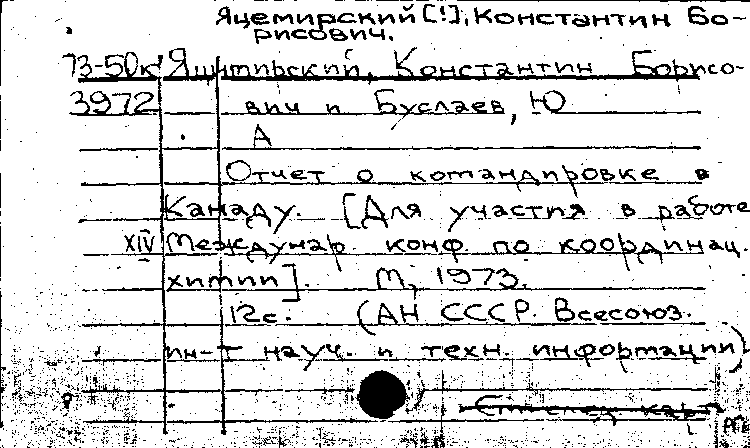 Яцемирский [!], Константин Бо-
рисович.
73-50к Яцимирский, Константин Борисо-
3972 вич и Буслаев, Ю
А
Отчет о командировке в
Канаду. [Для участия в работе
XIV Междунар. конф. по координац.
химии]. М, 1973.
12с. (АН СССР. Всесоюз.
ин-т науч. и техн. информации)